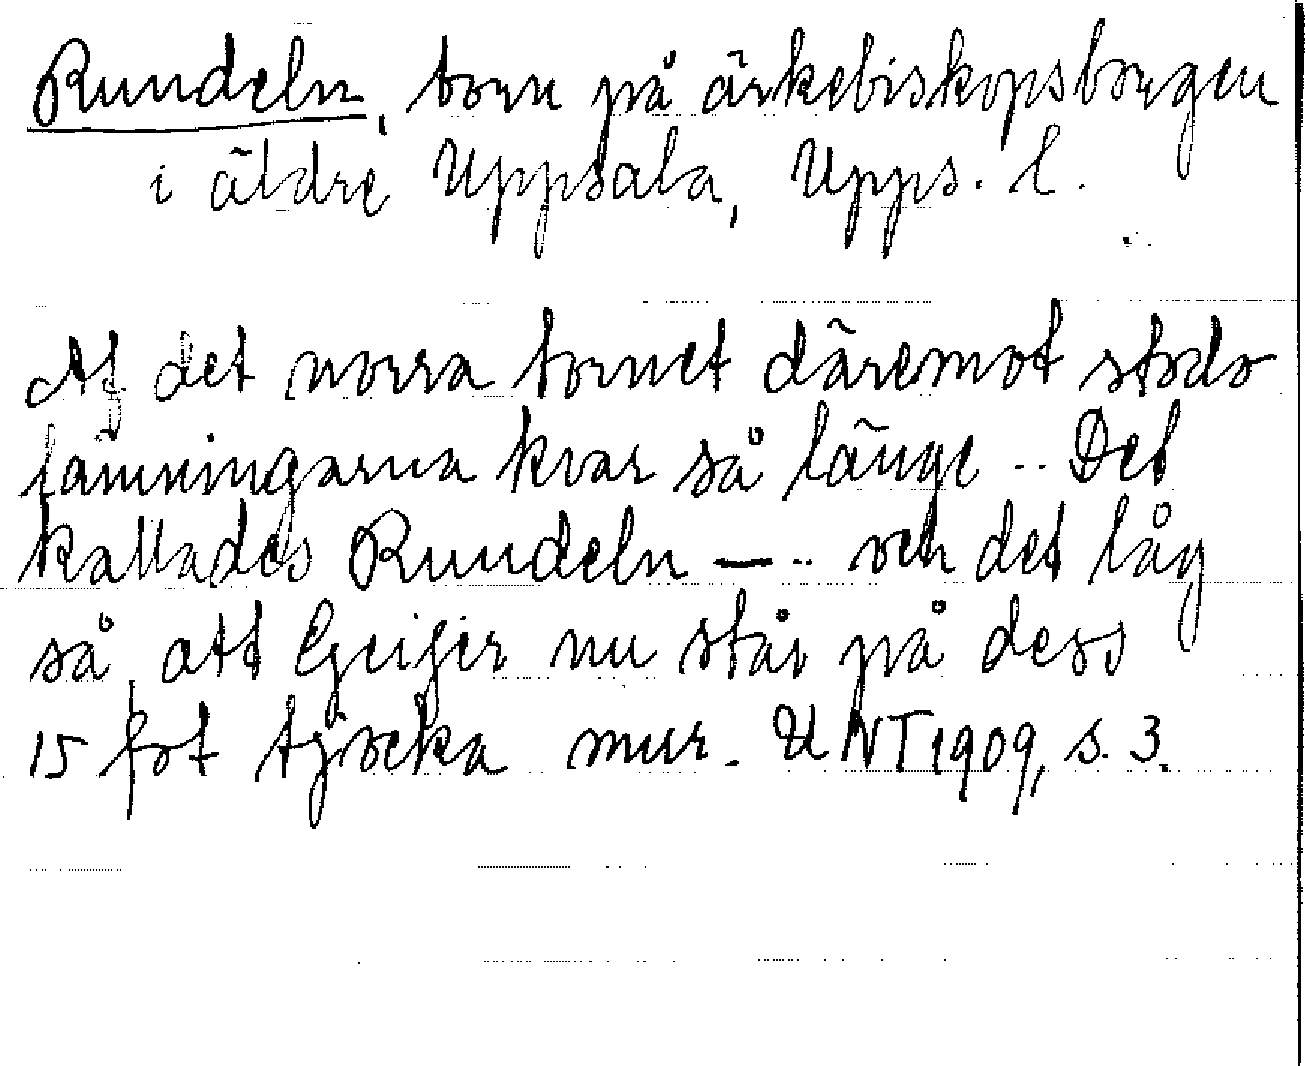 Rundeln, torn på ärkebiskopsborgen
i äldre Uppsala, Upps. l.
Af det norra tornet däremot stodo
lämningarna kvar så länge .. Det
kallades Rundeln — .. och det låg
så, att Geijer nu står på dess
15 fot tjocka mur. UNT 1909, s. 3.